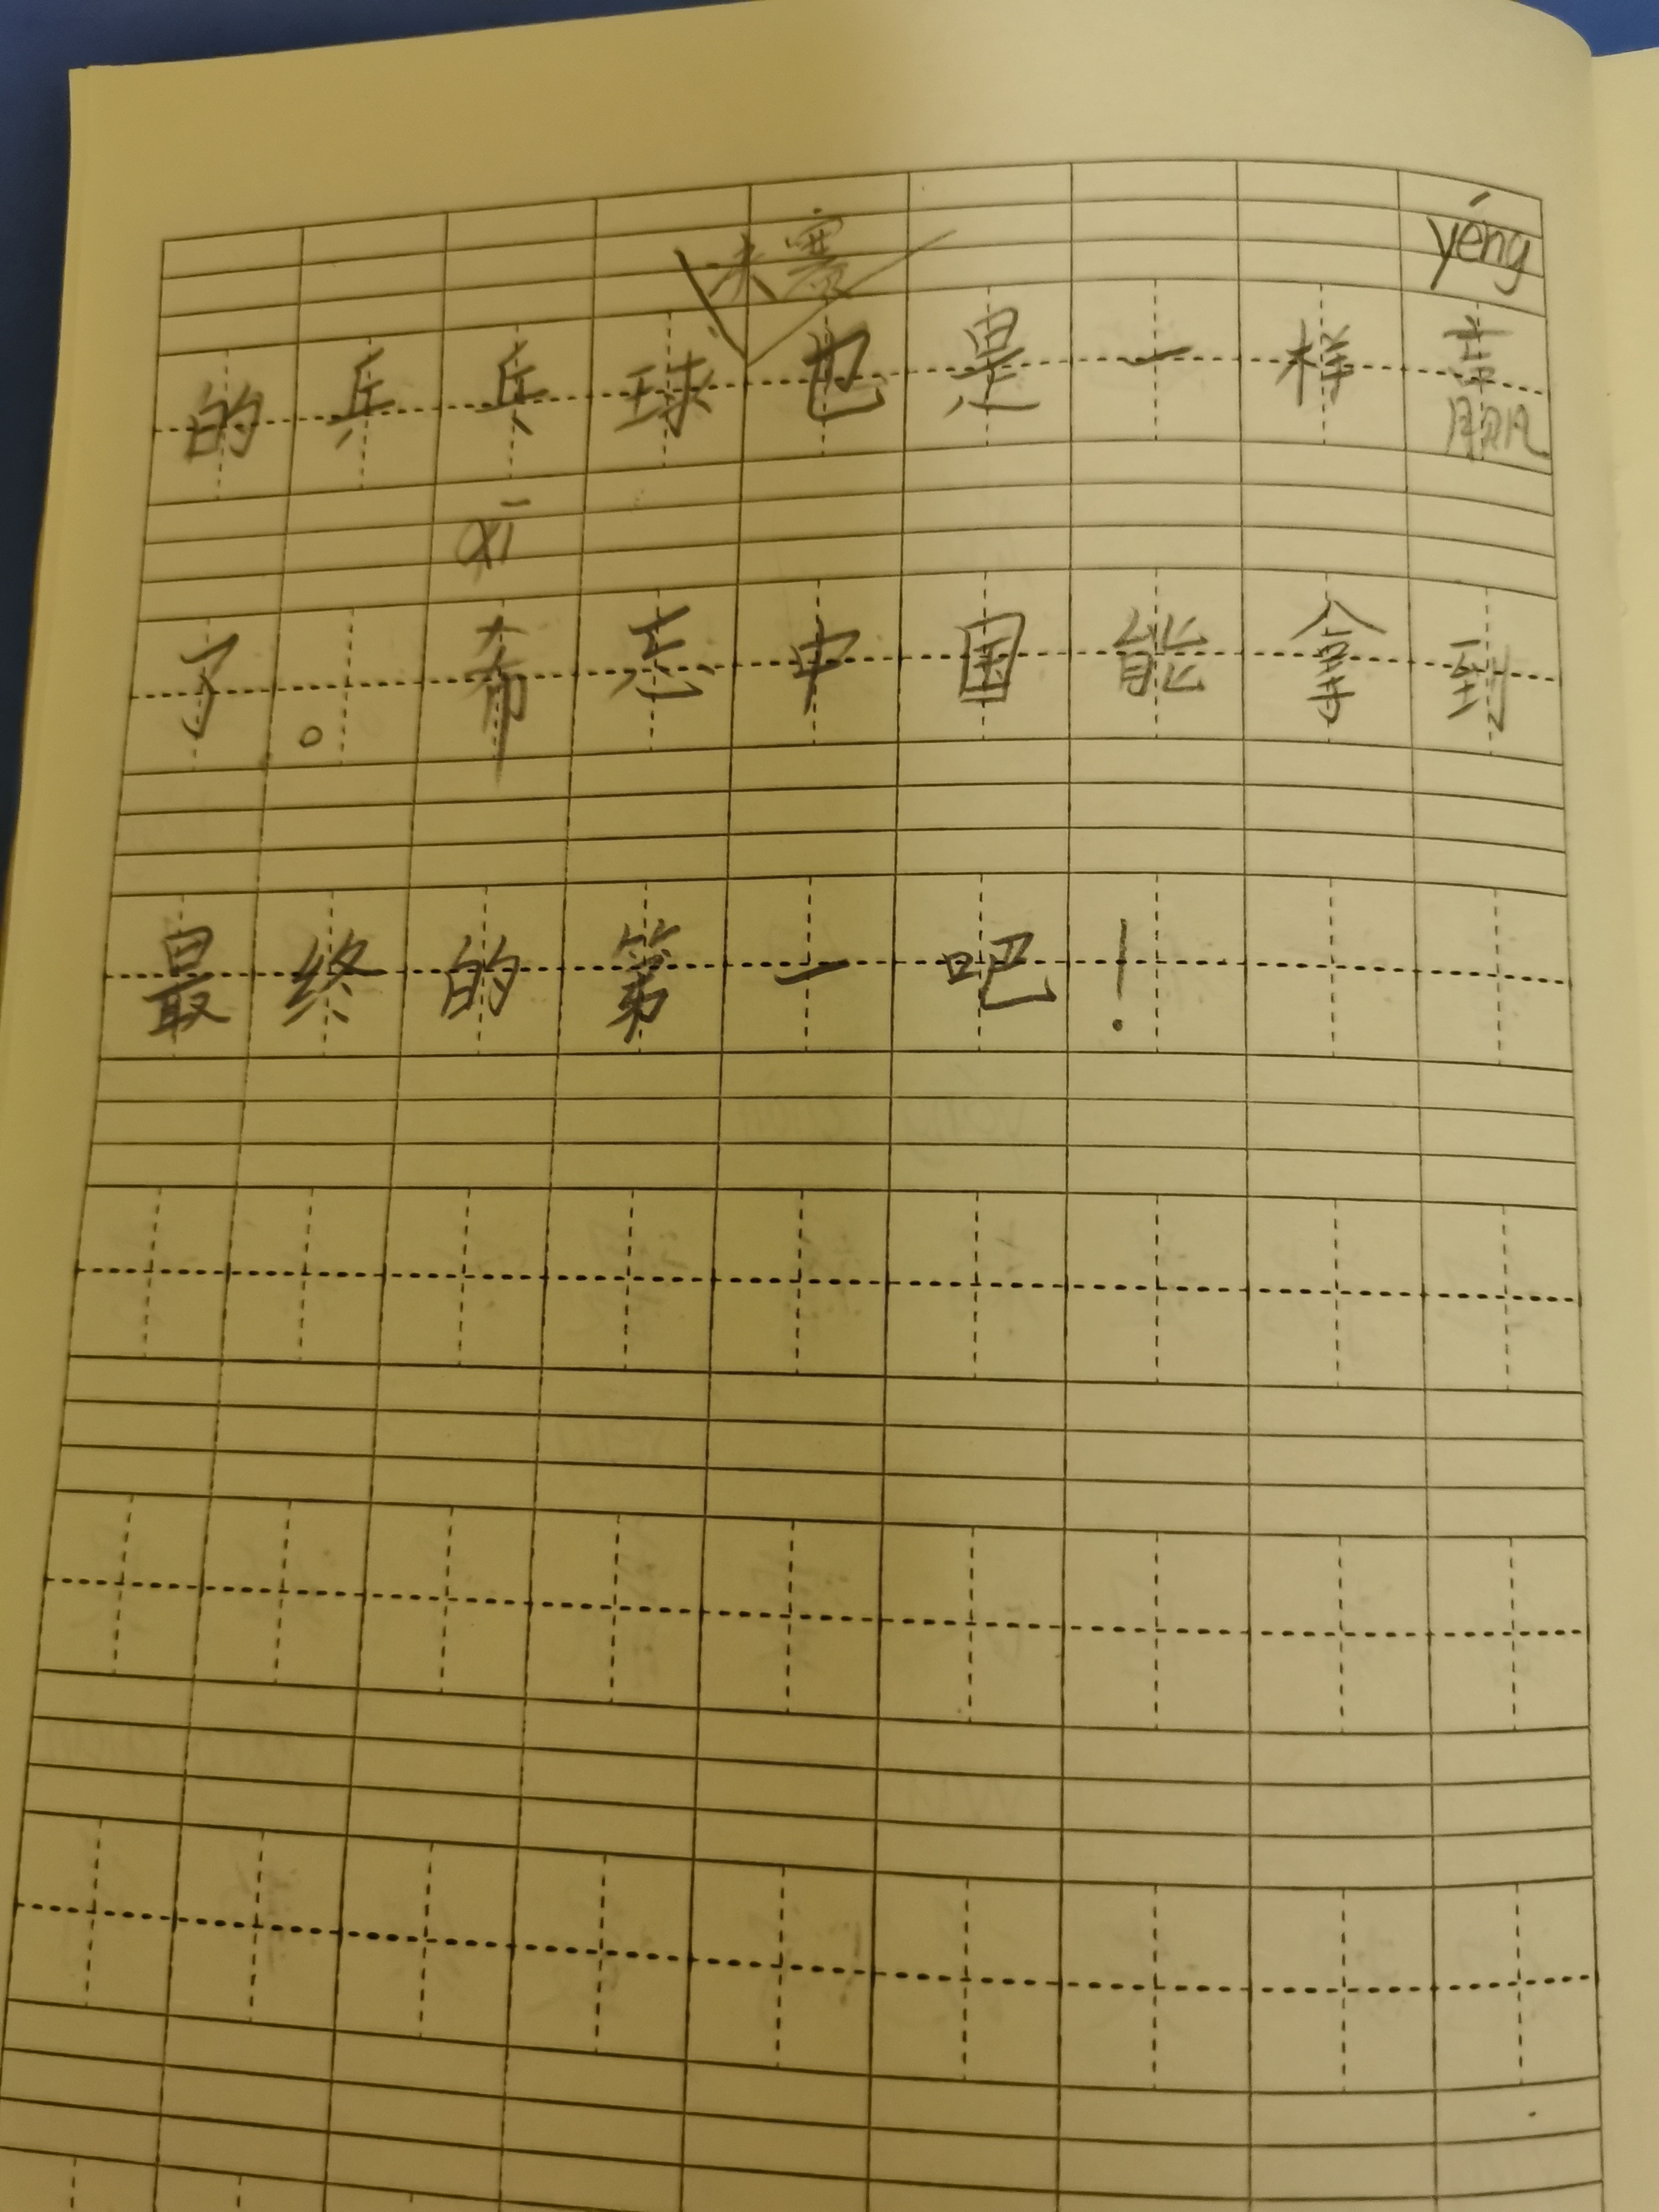 决赛 yéng
的乒乓球也是一样赢
xī
了。希忘中国能拿到
最终的第一吧！